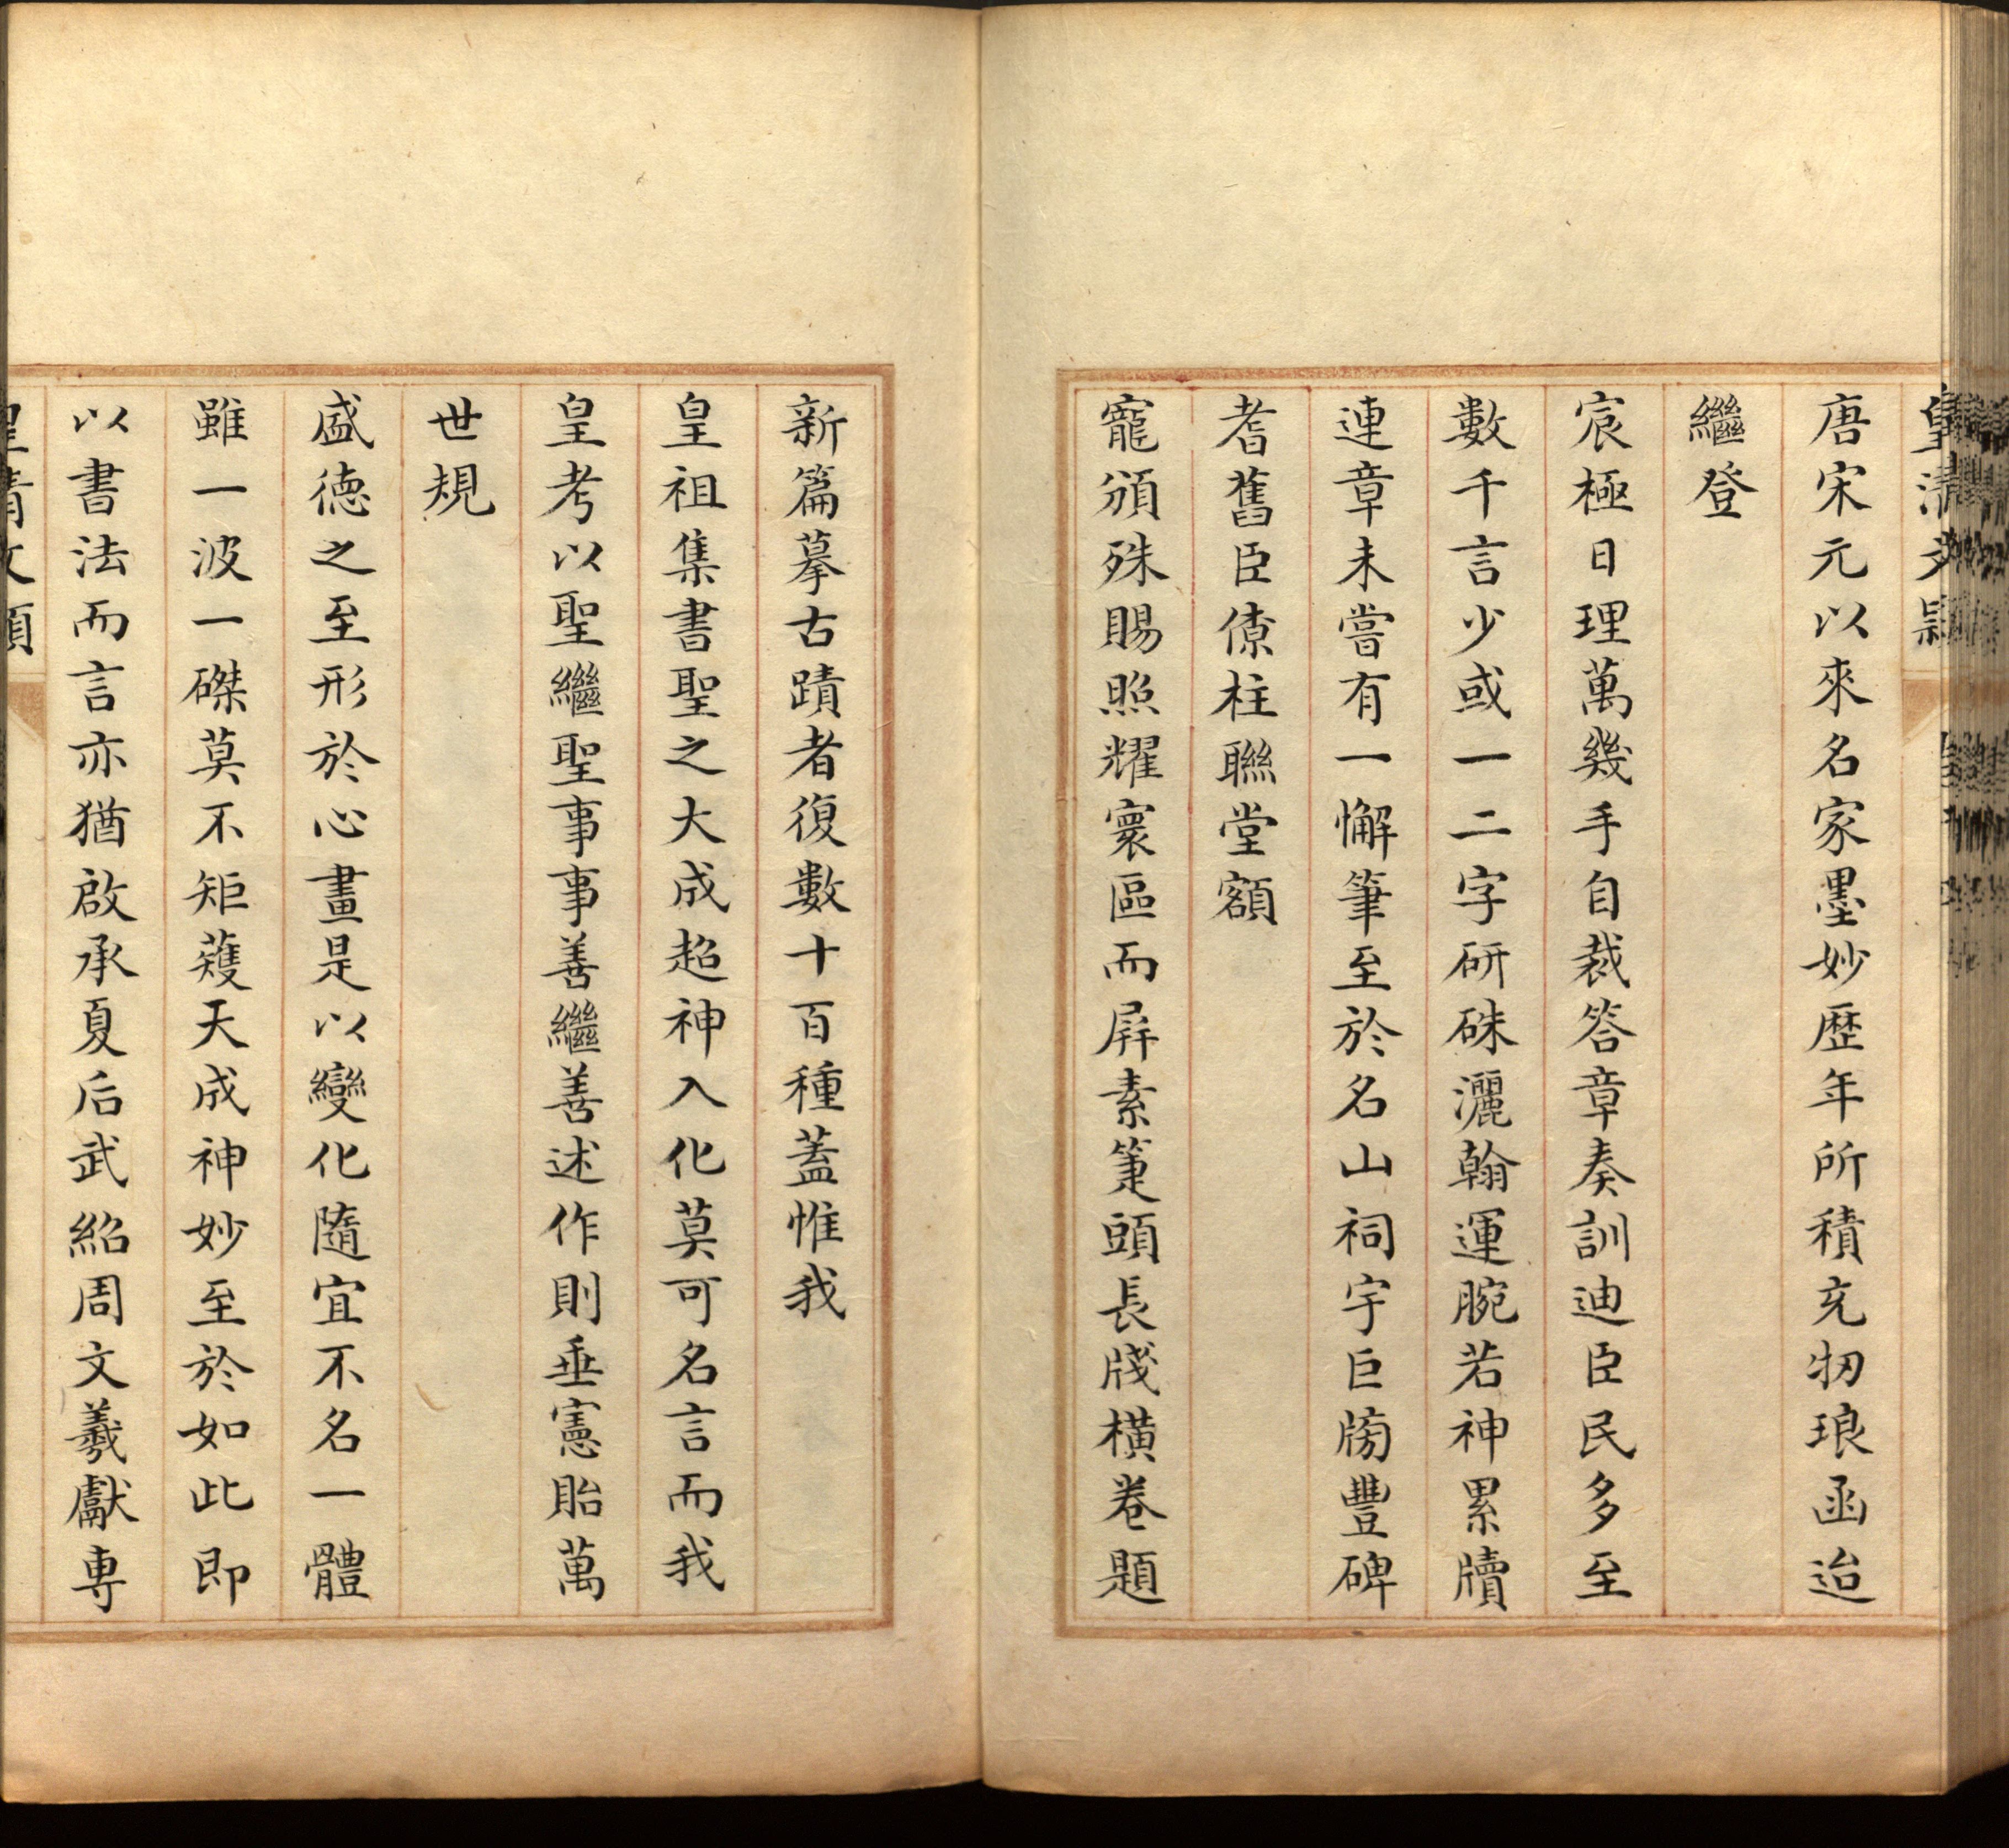 皇清文穎
唐宋元以來名家墨妙歴年所積充牣琅函迨
繼登
宸極日理萬幾手自裁答章奏訓迪臣民多至
數千言少或一二字研硃灑翰運腕若神累牘
連章未嘗有一懈筆至於名山祠宇巨牓豐碑
耆舊臣僚柱聯堂額
寵頒殊賜照耀寰區而屏素箑頭長牋橫卷題
新篇摹古蹟者復數十百種蓋惟我
皇祖集書聖之大成超神入化莫可名言而我
皇考以聖繼聖事事善繼善述作則垂憲貽萬
世規
盛德之至形於心畫是以變化隨宜不名一體
雖一波一磔莫不矩矱天成神妙至於如此即
以書法而言亦猶啟承夏后武紹周文羲獻専
皇清文穎